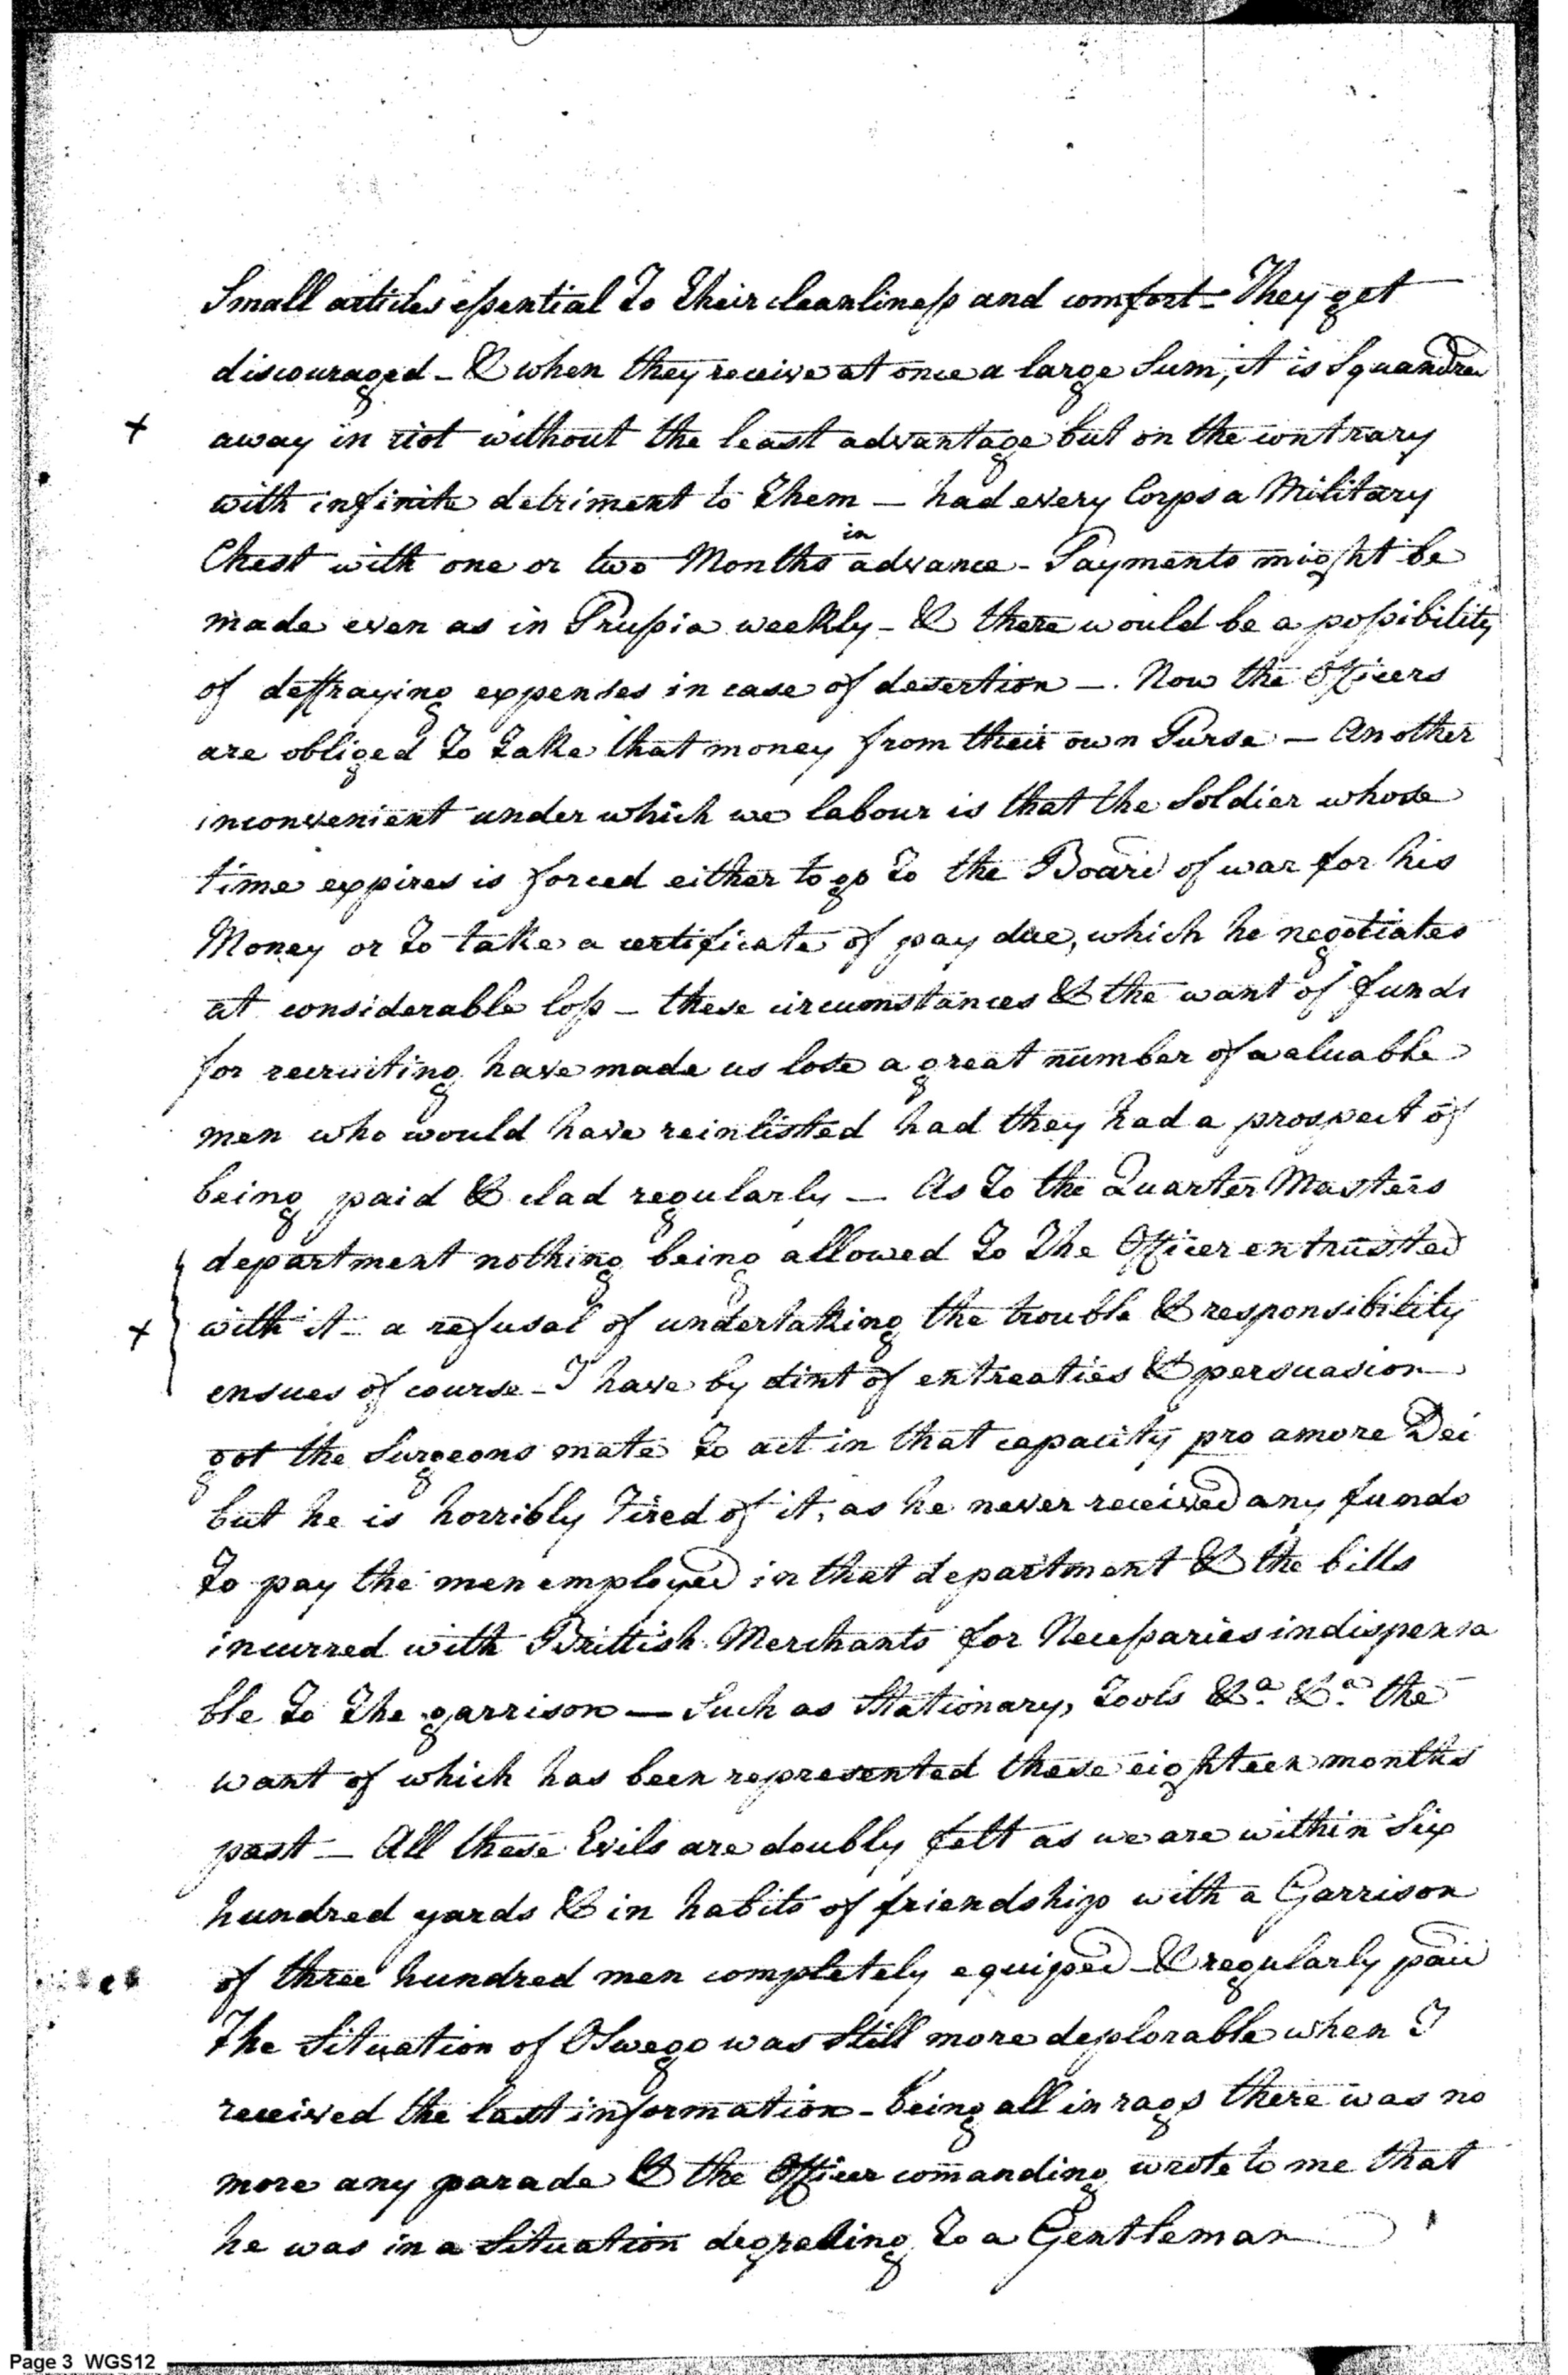 Small articles essential to their cleanliness and comfort - They get
discouraged - & when they receive at once a large Sum, it is Squandred
+ away in riot without the least advantage but on the contrary
with infinite detriment to them — had every Corps a Military
in
Chest with one or two Months advance - Payments might be
made even as in Prussia weekly - & there would be a possibility
of deffraying expenses in case of desertion —. Now the Officers
are obliged to take that money from their own Purse — Another
inconvenient under which we labour is that the Soldier whose
time expires is forced either to go to the Board of war for his
Money or to take a certificate of pay due, which he negotiates
at considerable loss - these circumstances & the want of funds
for recruiting have made us lose a great number of valuable
men who would have reinlisted had they had a prospect of
being paid & clad regularly — As to the Quarter Masters
department nothing being allowed to the Officer entrusted
+ with it - a refusal of undertaking the trouble & responsibility
ensues of course - I have by dint of entreaties & persuasion
got the Surgeons mate to act in that capacity pro amore Dei
but he is horribly tired of it, as he never received any funds
to pay the men employed in that department & the bills
incurred with Brittish Merchants for Necessaries indispensa
ble to the garrison — Such as Stationary, tools &a. &a. the
want of which has been represented these eighteen months
past — All these Evils are doubly felt as we are within Six
hundred yards & in habits of friendship with a Garrison
of three hundred men completely equiped - & regularly paid
The Situation of Oswego was Still more deplorable when I
received the last information - being all in rags there was no
more any parade & the Officer comanding wrote to me that
he was in a Situation degrading to a Gentleman
Page 3 WGS12